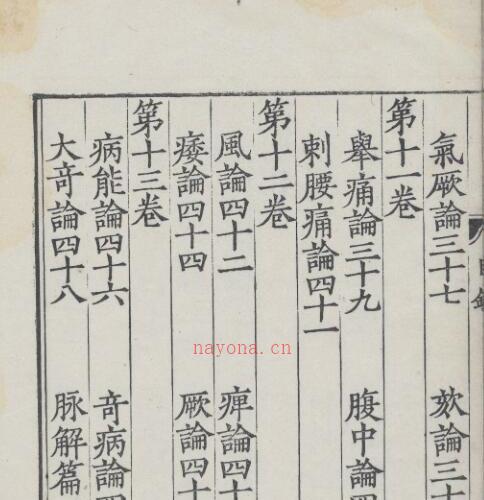 氣厥論三十七 欬論三十
第十一卷
舉痛論三十九 腹中論
刺腰痛論四十一
第十二卷
風論四十二 痺論四十
痿論四十四 厥論四十
第十三卷
病能論四十六 奇病論四
大奇論四十八 脉解篇
nayona.cn